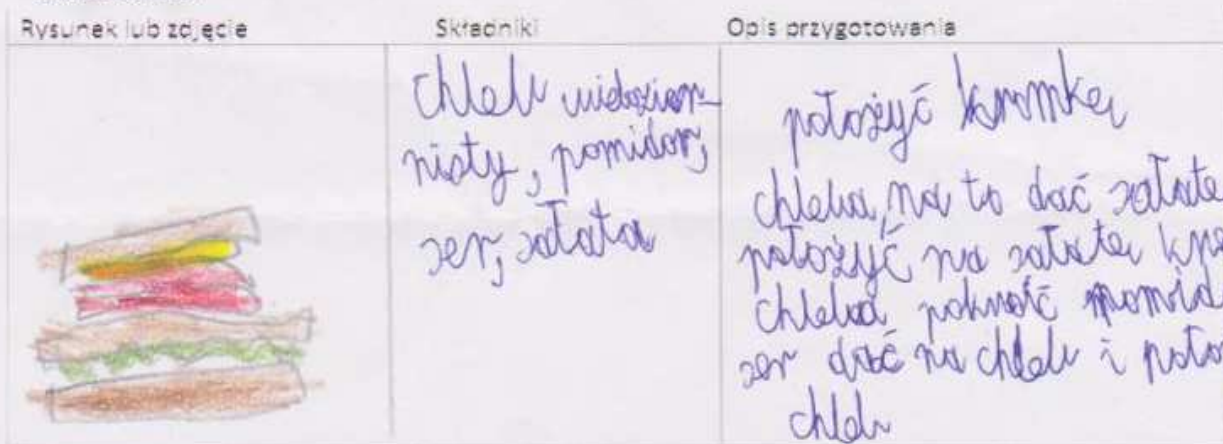 Rysunek lub zdjęcie
Składniki
Opis przygotowania
chleb
nisty, pomidor,
ser, sałata
położyć kromkę
chleba, na to dać sałatę
położyć na sałatę
chleba, pokroić
ser dać na chleb i
chleb